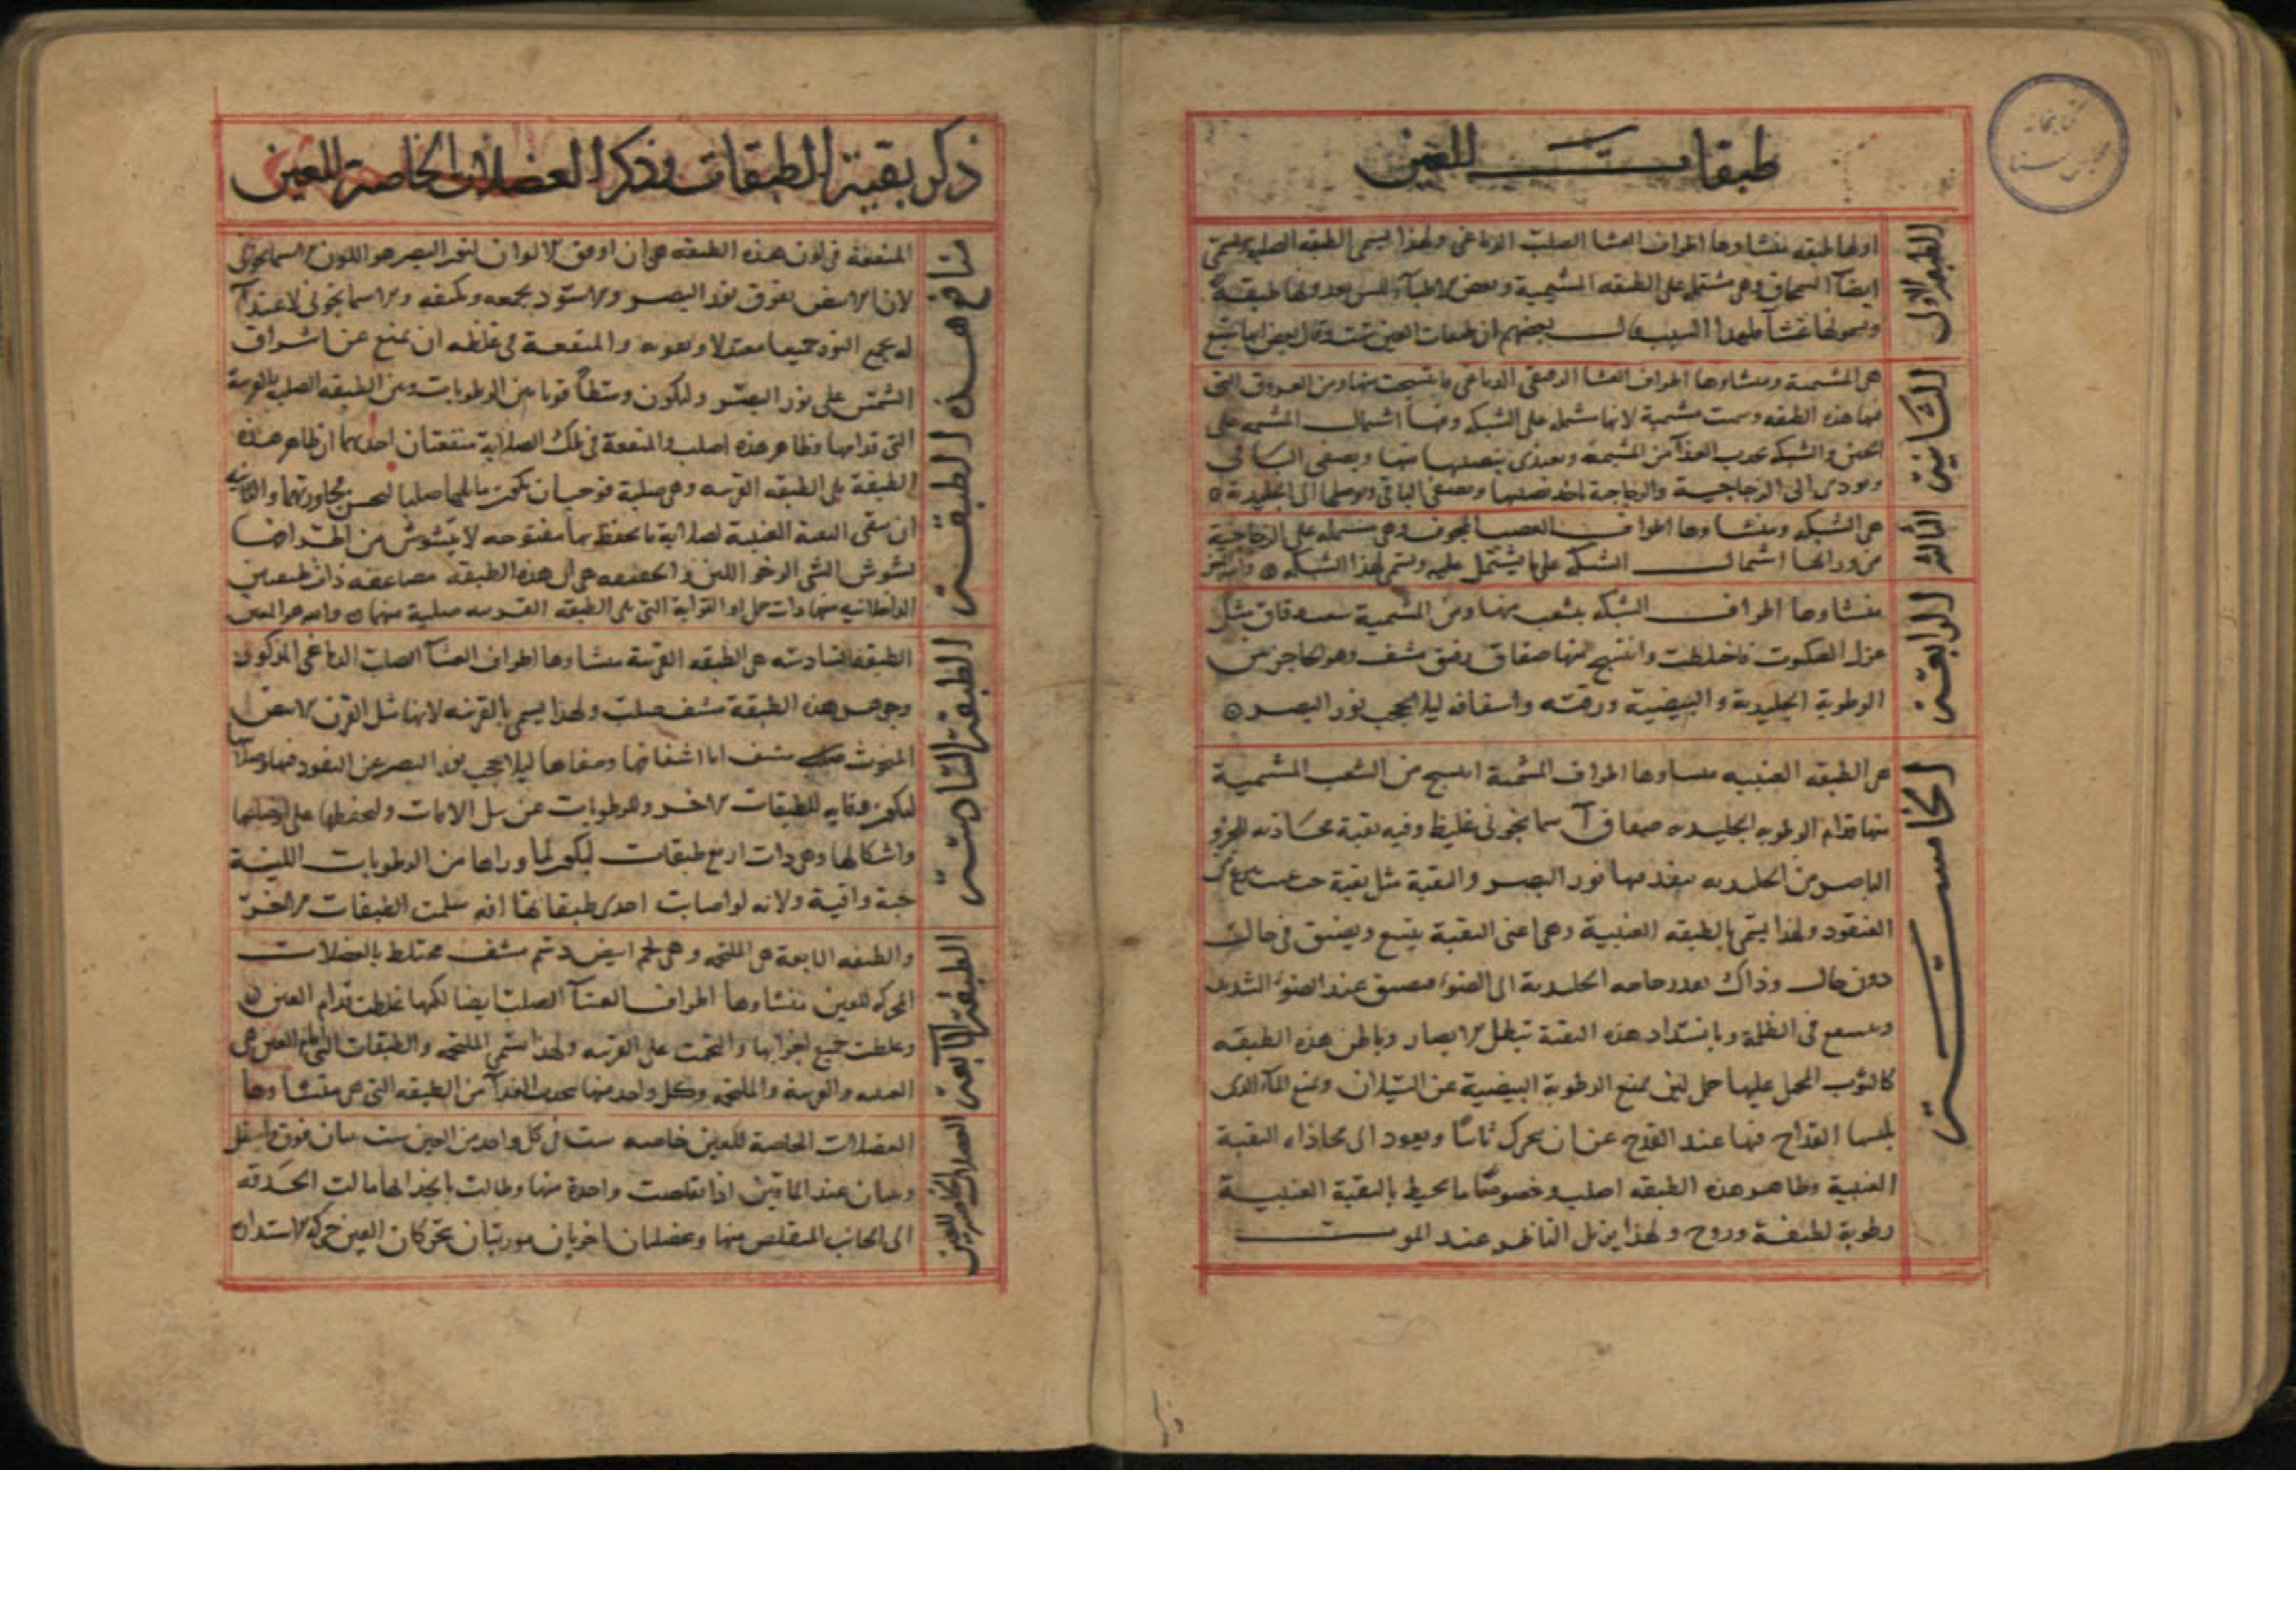 طبقات العين
الطبقة الاولى
اولها طبقه منشاوها اطراف الغشا الصلب الدماغى ولهذا يسمى الطبقه الصلبه
ايضا وهى مشتمله على الطبقه المشيمية وبعض الاطبا ليس يعدونها طبقة
ويسمونها غشا ولهذا السبب قال بعضهم ان طبقات العين ست وقال بعض انها سبع
الثانية
هى المشيمية ومنشاوها اطراف الغشا الرقيق الدماغى ما ينتسج منها ومن العروق التى
فيها هذه الطبقه وسميت مشيمية لانها تشتمل على الشبكه اشتمال المشيمه على
الجنين والشبكه تجذب الغذا من المشيمة وتغتذى بنصيبها منها ويصفى الباقى
وتودى الى الزجاجية والزجاجية تاخذ نصيبها وتصفى الباقى وتوصلها الى الجليدية
الثالثة
هى الشبكه ومنشاوها اطراف العصب المجوف وهى مشتمله على الزجاجية
من ورائها اشتمال الشبكه على ما يشتمل عليه وتسمى لهذا الشبكه
الرابعة
منشاوها اطراف الشبكه يتشعب منها ومن المشيمية شعب دقاق مثل
غزل العنكبوت فاختلطت وانتسج منها صفاق رقيق مشف وهو كحاجز بين
الرطوبة الجليدية والبيضية ورقته واسفافه ليلا يحجب نور البصر
الخامسة
هى الطبقه العنبيه منشاوها اطراف المشيمة انتسج من الشعب المشيمية
منها قدام الرطوبه الجليديه صفاق اسمانجونى غليظ وفيه ثقبة محاذيه للجزو
الباصر من الجليديه ينفذ منها نور البصر والثقبة مثل ثقبة حب عنب
العنقود ولهذا يسمى بالطبقه العنبية وهى اعنى الثقبة يتسع ويضيق فى حال
دون حال وذاك بقدر حاجه الجليدية الى الضوء فيضيق عند الضوء الشديد
ويتسع فى الظلمة وبانسداد هذه الثقبة تبطل الابصار وباطن هذه الطبقه
كالثوب المخمل عليها خمل لين يمنع الرطوبة البيضية عن السيلان ويمنع الماء الذى
القداح فيها عند القدح عن ان يتحرك ثانيا ويعود الى محاذاه الثقبة
العنبية وظاهر هذه الطبقه اصلب وخصوصا ما يحيط بالثقبة العنبية
رطوبة لطيفة وروح ولهذا الناظر عند الموت
ذكر بقية الطبقات وذكر العضلات الخاصة للعين
منافع هذه الطبقة
المنفعة فى لون هذه الطبقه هى ان اوفق الالوان لنور البصر هو اللون الاسمانجونى
لان الابيض يفرق نور البصر والاسود يجمعه ويكثفه والاسمانجونى لاعتداله
يجمع النور جميعا معتدلا ويقويه والمنفعة فى غلظه ان يمنع عن اشراق
الشمس على نور البصر وليكون وسطا قويا بين الرطوبات وبين الطبقه الصلبه القرنية
التى قدامها وظاهر هذه اصلب والمنفعة فى تلك الصلابة منفعتان احديهما ان ظاهر هذه
الطبقة يلى الطبقه القرنيه وهى صلبة فوجب ان يكون ما يليها صلبا ليحسن مجاورتهما والثانية
ان يبقى الثقبة العنبية لصلابة ما يحيط بها مفتوحه لا يتشوش من اطرافها
تشوش الشى الرخو اللين والحقيقه هى ان هذه الطبقه مضاعفه ذات طبقتين
الداخلانيه منها ذات خمل والبرانية التى يلى الطبقه القرنيه صلبة منها
الطبقة السادسة
الطبقه السادسه هى الطبقه القرنية منشاوها اطراف الغشا الصلب الدماغى المذكور
وجوهر هذه الطبقة مشف صلب ولهذا يسمى بالقرنيه لانها مثل القرن الابيض
المنحوت مشف اما اشفافها وصفاها ليلا يحجب نور البصر عن النفوذ فيها وصلابتها
لتكون وقايه للطبقات الاخر وللرطوبات عن نيل الافات ولتحفظها على اوضاعها
واشكالها وهى ذات اربع طبقات ليكون لما وراءها من الرطوبات اللينة
جنة واقية ولانه لو اصابت احدى طبقاتها افه سلمت الطبقات الاخر
الطبقة السابعة
والطبقه السابعة هى الملتحمه وهى لحم ابيض دسم مشف مختلط بالعضلات
المحركه للعين منشاوها اطراف الغشا الصلب ايضا لكنها غلظت قدام العين
وغلظت جميع اجزائها والتحمت على القرنيه ولهذا تسمى الملتحمه والطبقات التى امام العين هى
العنبيه والقرنية والملتحمه وكل واحد منها تجذب الغذا من الطبقه التى هى منشاوها
العضلات الخاصة للعين
العضلات الخاصة للعين خاصه ست فى كل واحد من العين ست ثنتان فوق واسفل
وثنتان عند الماقين اذا تقلصت واحدة منها وطالت بانجذابها مالت الحدقه
الى الجانب المتقلص منها وعضلتان اخريان موربتان تحركان العين حركة الاستدارة